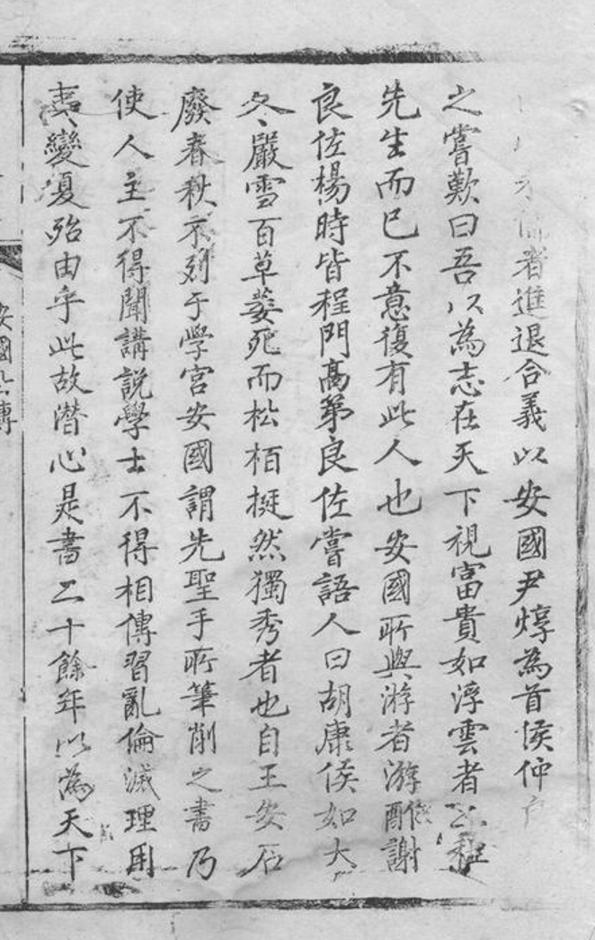 不儒者進退合義以安國尹焞為首侯仲
之嘗歎曰吾以為志在天下視富貴如浮雲者二程
先生而已不意復有此人也安國所與游者游酢謝
良佐楊時皆程門高第良佐嘗語人曰胡康侯如大
冬嚴雪百草萎死而松栢挺然獨秀者也自王安石
廢春秋不列于學宮安國謂先聖手所筆削之書乃
使人主不得聞講說學士不得相傳習亂倫滅理用
夷變夏殆由乎此故潜心是書二十餘年以為天下
安國公傳